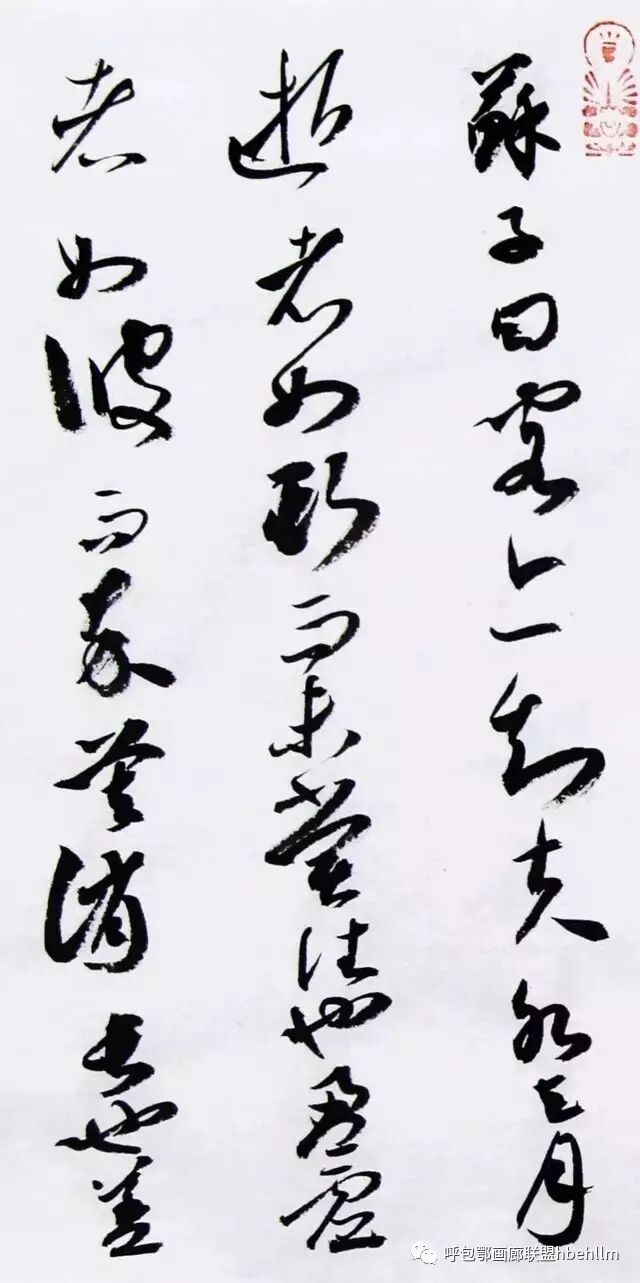 蘇子曰客亦知夫水与月
逝者如斯而未嘗往也盈虛
者如彼而卒莫消長也蓋
呼包鄂画廊联盟hbehllm